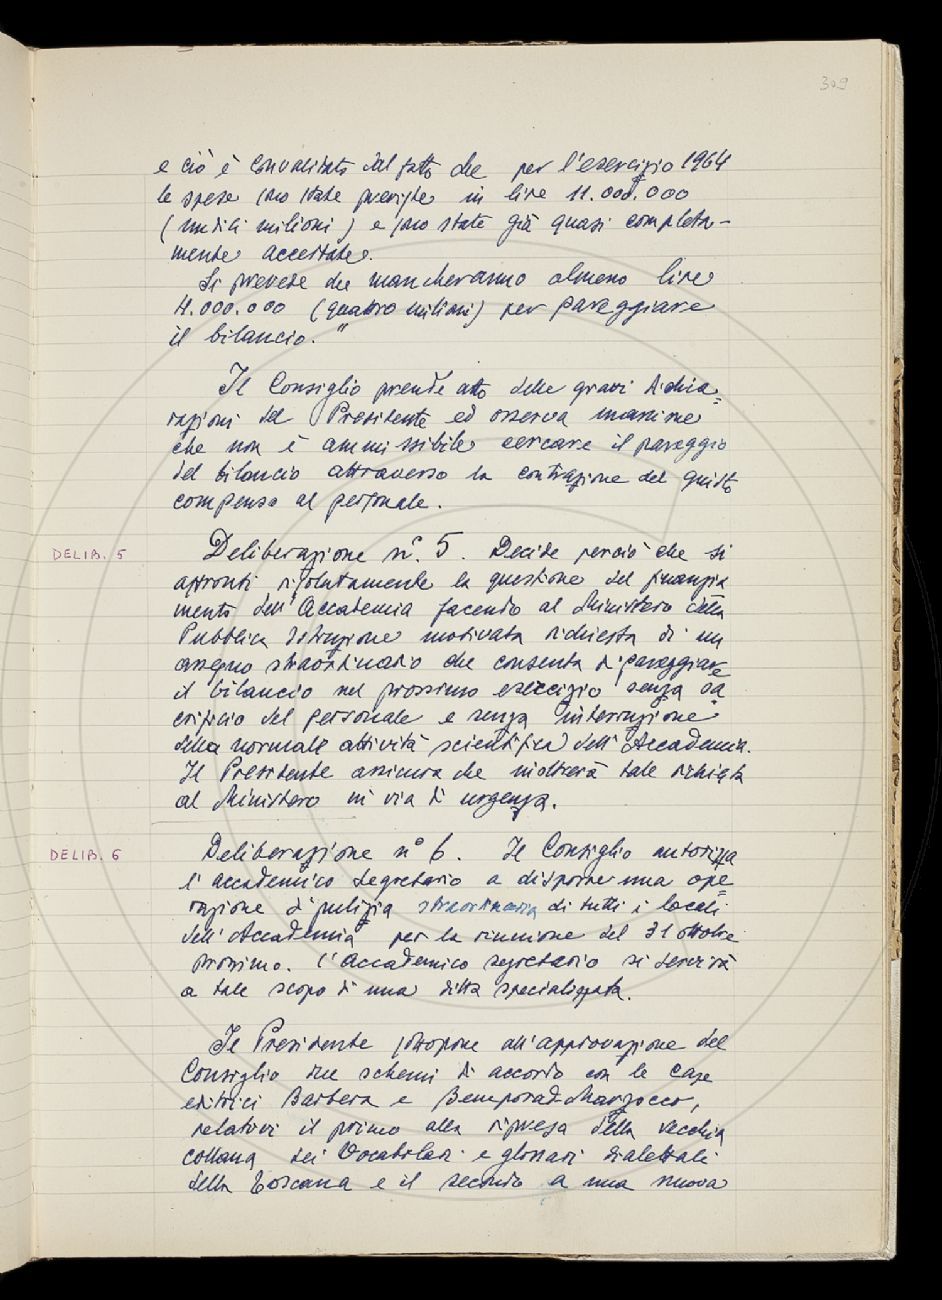 309
e ciò è convalidato dal fatto che per l'esercizio 1964
le spese sono state previste in lire 11.000.000
(undici milioni) e sono state già quasi completa-
mente accertate.
Si prevede che mancheranno almeno lire
4.000.000 (quattro milioni) per pareggiare
il bilancio."
Il Consiglio prende atto delle gravi dichia=
razioni del Presidente ed osserva
che non è ammissibile cercare il pareggio
del bilancio attraverso la contrazione del giusto
compenso al personale.
DELIB. 5
Deliberazione n°. 5. Decide perciò che si
affronti risolutamente la questione del finanzia
mento dell'Accademia facendo al Ministero della
Pubblica Istruzione motivata richiesta di un
assegno straordinario che consenta di pareggiare
il bilancio nel prossimo esercizio senza sa=
crificio del personale e senza interruzione
della normale attività scientifica dell'Accademia.
Il Presidente assicura che inoltrerà tale richiesta
al Ministero in via di urgenza.
DELIB. 6
Deliberazione n° 6. Il Consiglio autorizza
l'accademico segretario a disporre una ope=
razione di pulizia straordinaria di tutti i locali
dell'Accademia per la riunione del 31 ottobre
prossimo. L'accademico segretario si servirà
a tale scopo di una ditta specializzata.
Il Presidente sottopone all'approvazione del
Consiglio due schemi di accordo con le Case
editrici Barbèra e Bemporad-Marzocco,
relativi il primo alla ripresa della vecchia
collana dei Vocabolari e glossari dialettali
della Toscana e il secondo a una nuova